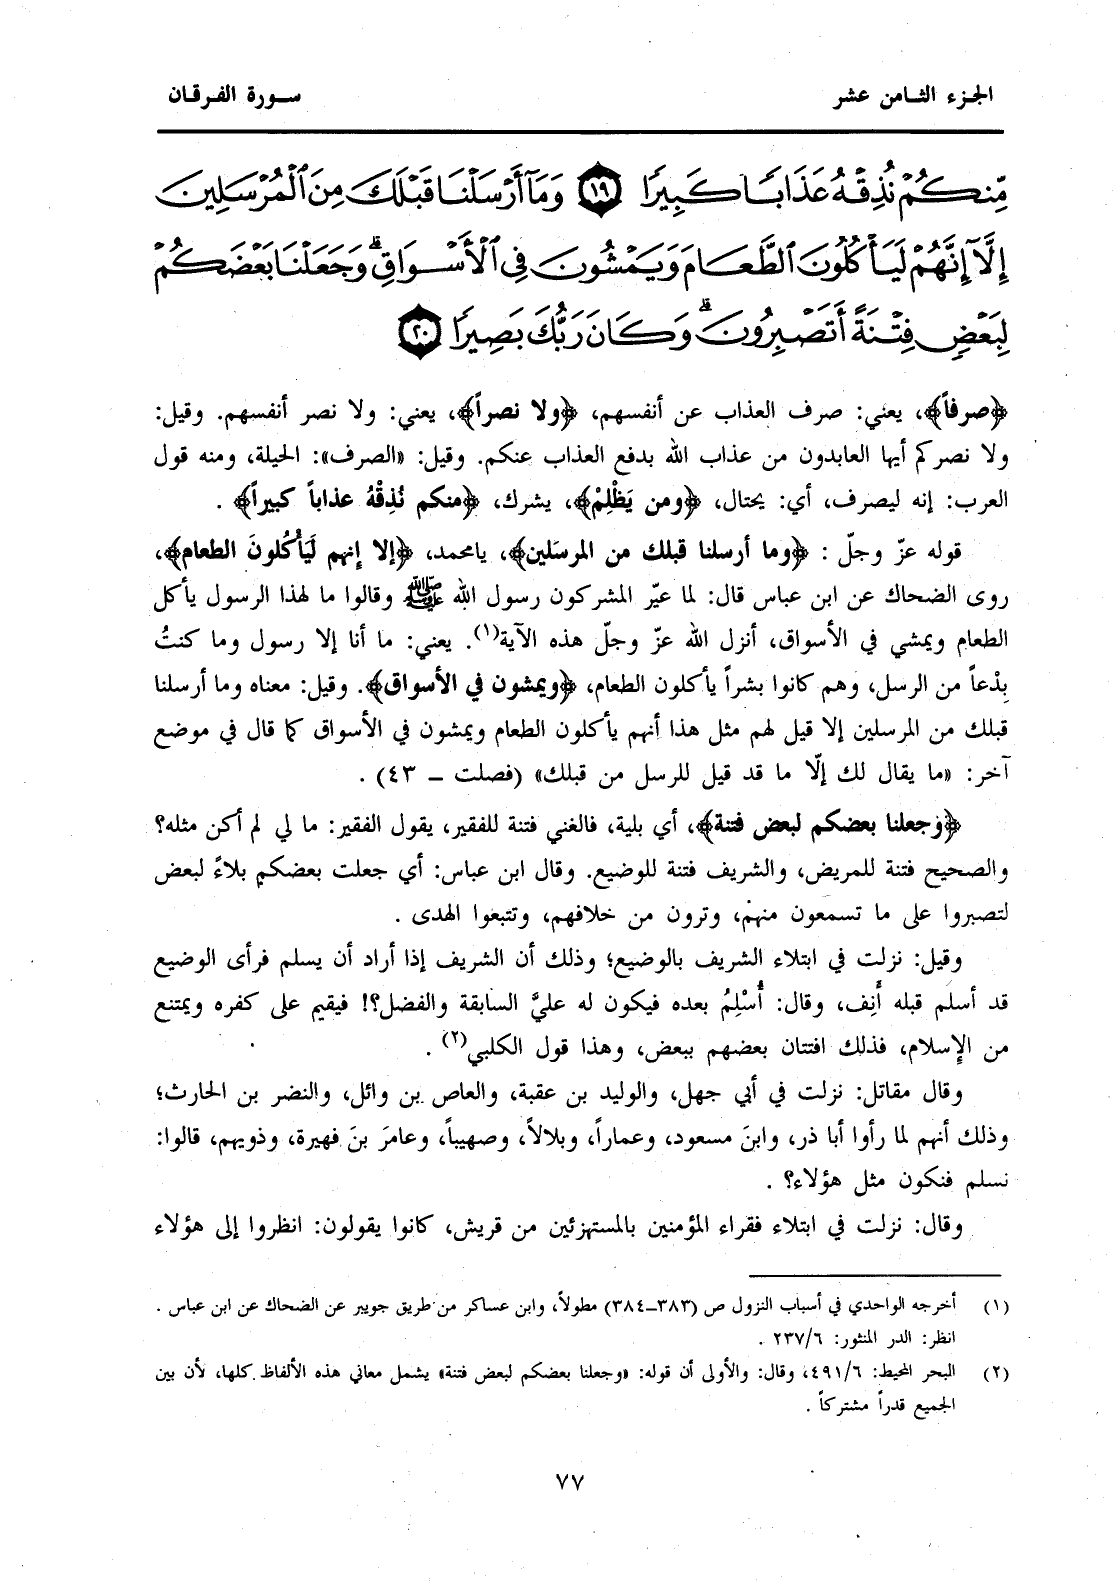 الجزء الثامن عشر
سورة الفرقان
مِّنكُمْ نُذِقْهُ عَذَابًا كَبِيرًا ﴿١٩﴾ وَمَآ أَرْسَلْنَا قَبْلَكَ مِنَ ٱلْمُرْسَلِينَ
إِلَّآ إِنَّهُمْ لَيَأْكُلُونَ ٱلطَّعَامَ وَيَمْشُونَ فِى ٱلْأَسْوَاقِ ۗ وَجَعَلْنَا بَعْضَكُمْ
لِبَعْضٍ فِتْنَةً أَتَصْبِرُونَ ۗ وَكَانَ رَبُّكَ بَصِيرًا ﴿٢٠﴾
﴿صرفاً﴾، يعني: صرف العذاب عن أنفسهم، ﴿ولا نصراً﴾، يعني: ولا نصر أنفسهم. وقيل:
ولا نصركم أيها العابدون من عذاب الله بدفع العذاب عنكم. وقيل: «الصرف»: الحيلة، ومنه قول
العرب: إنه ليصرف، أي: يحتال، ﴿ومن يَظْلِمْ﴾، يشرك، ﴿منكم نُذِقْهُ عذاباً كبيراً﴾ .
قوله عزّ وجلّ : ﴿وما أرسلنا قبلك من المرسَلين﴾، يامحمد، ﴿إلا إنهم لَيَأْكُلونَ الطعام﴾،
روى الضحاك عن ابن عباس قال: لما عيّر المشركون رسول الله ﷺ وقالوا ما لهذا الرسول يأكل
الطعام ويمشي في الأسواق، أنزل الله عزّ وجلّ هذه الآية(١). يعني: ما أنا إلا رسول وما كنتُ
بِدْعاً من الرسل، وهم كانوا بشراً يأكلون الطعام، ﴿ويمشون في الأسواق﴾. وقيل: معناه وما أرسلنا
قبلك من المرسلين إلا قيل لهم مثل هذا أنهم يأكلون الطعام ويمشون في الأسواق كما قال في موضع
آخر: «ما يقال لك إلّا ما قد قيل للرسل من قبلك» (فصلت – ٤٣) .
﴿وَجعلنا بعضكم لبعض فتنة﴾، أي بلية، فالغني فتنة للفقير، يقول الفقير: ما لي لم أكن مثله؟
والصحيح فتنة للمريض، والشريف فتنة للوضيع. وقال ابن عباس: أي جعلت بعضكم بلاءً لبعض
لتصبروا على ما تسمعون منهم، وترون من خلافهم، وتتبعوا الهدى .
وقيل: نزلت في ابتلاء الشريف بالوضيع؛ وذلك أن الشريف إذا أراد أن يسلم فرأى الوضيع
قد أسلم قبله أَنِف، وقال: أُسْلِمُ بعده فيكون له عليَّ السابقة والفضل؟! فيقيم على كفره ويمتنع
من الإسلام، فذلك افتتان بعضهم ببعض، وهذا قول الكلبي(٢) .
وقال مقاتل: نزلت في أبي جهل، والوليد بن عقبة، والعاص بن وائل، والنضر بن الحارث؛
وذلك أنهم لما رأوا أبا ذر، وابنَ مسعود، وعماراً، وبلالاً، وصهيباً، وعامرَ بنَ فهيرة، وذويهم، قالوا:
نسلم فنكون مثل هؤلاء؟ .
وقال: نزلت في ابتلاء فقراء المؤمنين بالمستهزئين من قريش، كانوا يقولون: انظروا إلى هؤلاء
(١) أخرجه الواحدي في أسباب النزول ص (٣٨٣–٣٨٤) مطولاً، وابن عساكر من طريق جويبر عن الضحاك عن ابن عباس .
انظر: الدر المنثور: ٢٣٧/٦ .
(٢) البحر المحيط: ٤٩١/٦، وقال: والأولى أن قوله: «وجعلنا بعضكم لبعض فتنة» يشمل معاني هذه الألفاظ كلها، لأن بين
الجميع قدراً مشتركاً .
٧٧